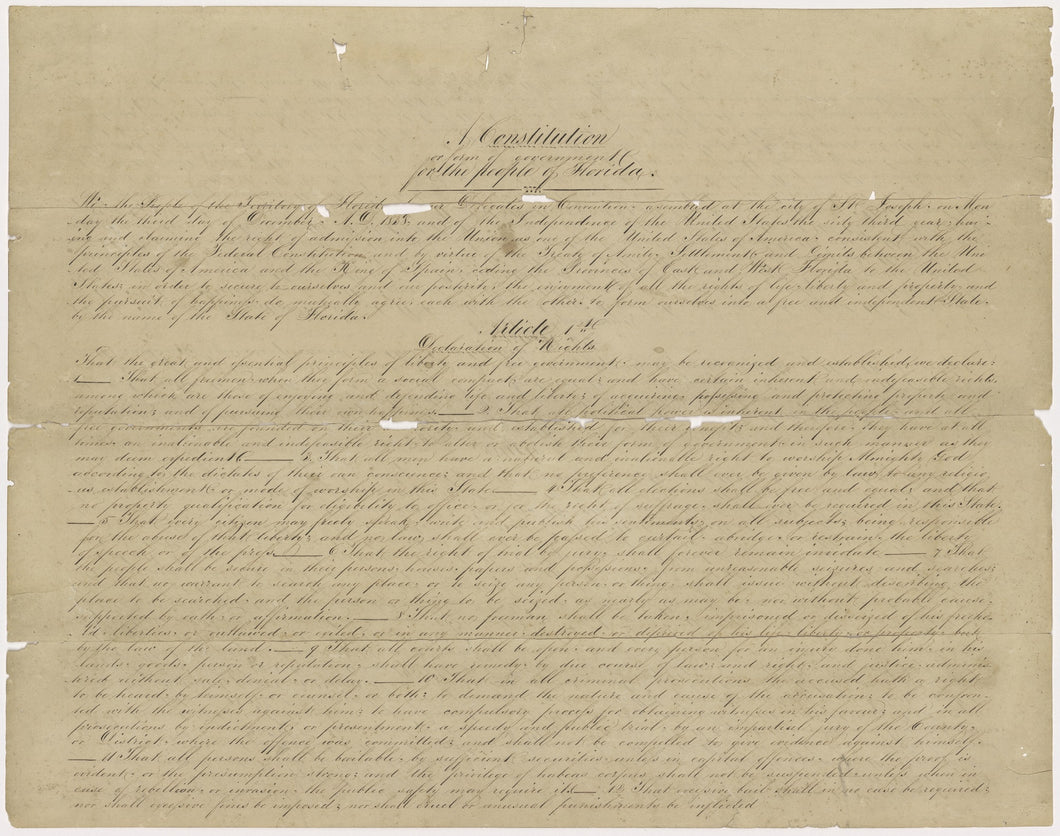 A Constitution
or form of government
for the people of Florida.
We the People of the Territory of Florida by our Delegates in Convention, assembled at the city of St. Joseph on Mon
day the third day of December, A.D. 1838, and of the Independence of the United States the sixty third year, hav-
ing and claiming the right of admission into the Union, as one of the United States of America, consistent with the
principles of the Federal Constitution, and by virtue of the Treaty of Amity, Settlement, and Limits between the Uni
ted States of America and the King of Spain, ceding the Provinces of East and West Florida to the United
States; in order to secure to ourselves and our posterity the enjoyment of all the rights of life, liberty and property, and
the pursuit of happiness, do mutually agree, each with the other, to form ourselves into a free and independent State,
by the name of the State of Florida.
Article 1st
Declaration of Rights
That the great and essential principles of liberty and free government, may be recognized and established, we declare:
1— That all freemen, when they form a social compact, are equal; and have certain inherent and indefeasible rights,
among which are those of enjoying and defending life and liberty; of acquiring, possessing and protecting property and
reputation; and of pursuing their own happiness. — 2. That all political power is inherent in the people, and all
free governments are founded on their authority, and established for their benefit; and therefore, they have at all
times, an inalienable and indefeasible right, to alter or abolish their form of government, in such manner as they
may deem expedient. — 3. That all men have a natural and inalienable right to worship Almighty God
according to the dictates of their own conscience; and that no preference shall ever be given by law, to any religio
us establishment or mode of worship in this State. — 4 That all elections shall be free and equal; and that
no property qualification for eligibility to office, or for the right of suffrage, shall ever be required in this State.
— 5 That every citizen may freely speak, write and publish his sentiments, on all subjects; being responsible
for the abuse of that liberty; and no law shall ever be passed to curtail, abridge, or restrain the liberty
of speech or of the press. — 6 That the right of trial by jury, shall forever remain inviolate. — 7 That
the people shall be secure in their persons, houses, papers and possessions, from unreasonable seizures and searches;
and that no warrant to search any place, or to seize any person or thing, shall issue without describing the
place to be searched, and the person or thing to be seized, as nearly as may be, nor without probable cause,
supported by oath or affirmation. — 8 That no freeman shall be taken, imprisoned or disseized of his freeho
ld, liberties, or outlawed, or exiled, or in any manner destroyed, or deprived of his life, liberty, or property, but
by the law of the land. — 9 That all courts shall be open, and every person for an injury done him, in his
lands, goods, person or reputation, shall have remedy by due course of law; and right and justice adminis
tered without sale, denial, or delay. — 10 That in all criminal prosecutions, the accused hath a right
to be heard by himself, or counsel, or both; to demand the nature and cause of the accusation; to be confron
ted with the witnesses against him; to have compulsory process for obtaining witnesses in his favour; and in all
prosecutions by indictment, or presentment, a speedy and public trial, by an impartial jury of the County
or District, where the offence was committed; and shall not be compelled to give evidence against himself.
— 11 That all persons shall be bailable, by sufficient securities, unless in capital offences, where the proof is
evident, or the presumption strong; and the privilege of habeas corpus, shall not be suspended, unless when in
case of rebellion, or invasion, the public safety may require it. — 12 That excessive bail shall in no case be required;
nor shall excessive fines be imposed; nor shall cruel or unusual punishments be inflicted